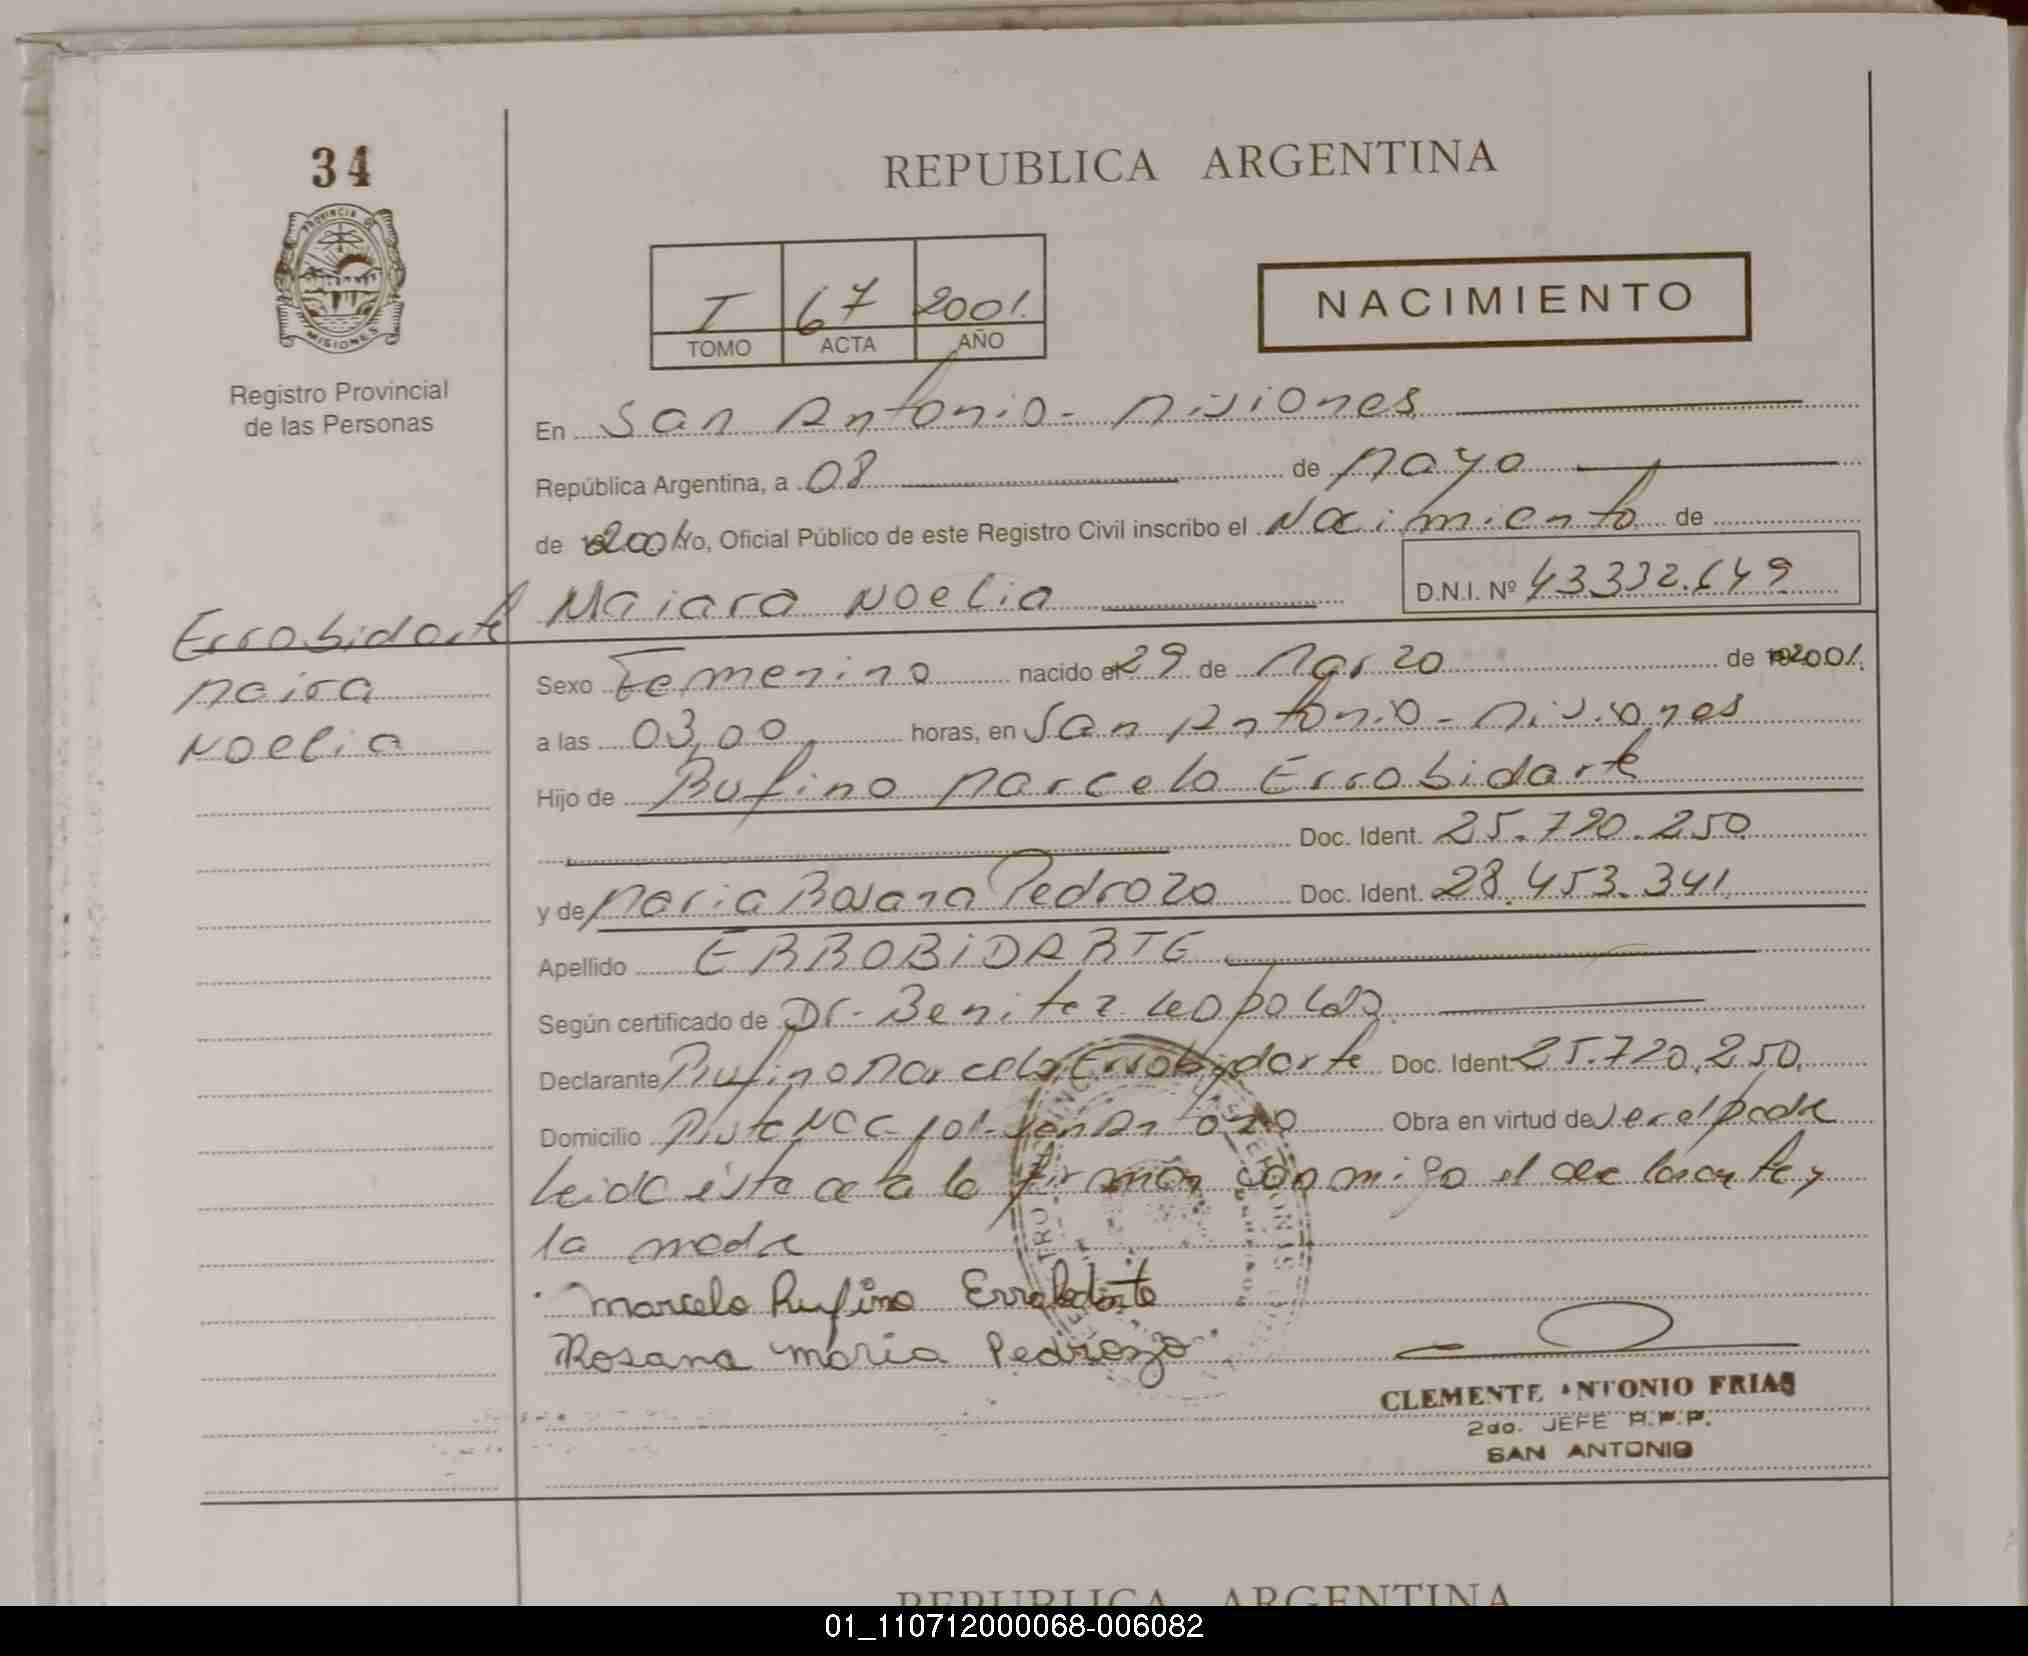 34
REPUBLICA ARGENTINA
PROVINCIA DE MISIONES
Registro Provincial
de las Personas
I 67 2001.
TOMO ACTA AÑO
NACIMIENTO
En San Antonio - Misiones
República Argentina, a 08 de Mayo
de 2001 Yo, Oficial Público de este Registro Civil inscribo el Nacimiento de
Maiara Noelia D.N.I. Nº 43.332.649
Errobidarte
Maira
Noelia
Sexo Femenino nacido el 29 de Marzo de 2001.
a las 03,00 horas, en San Antonio - Misiones
Hijo de Rufino Marcelo Errobidarte
Doc. Ident. 25.720.250
y de Maria Rosana Pedrozo Doc. Ident. 28.453.341
Apellido ERROBIDARTE
Según certificado de Dr. Benitez Leopoldo
Declarante Rufino Marcelo Errobidarte Doc. Ident. 25.720.250
Domicilio San Antonio Obra en virtud de ser el padre
Leida ésta acta la firman conmigo el declarante y
la madre
Marcelo Rufino Errobidarte
Rosana Maria Pedrozo
CLEMENTE ANTONIO FRIAS
2do. JEFE R.P.P.
SAN ANTONIO
REPUBLICA ARGENTINA
01_110712000068-006082